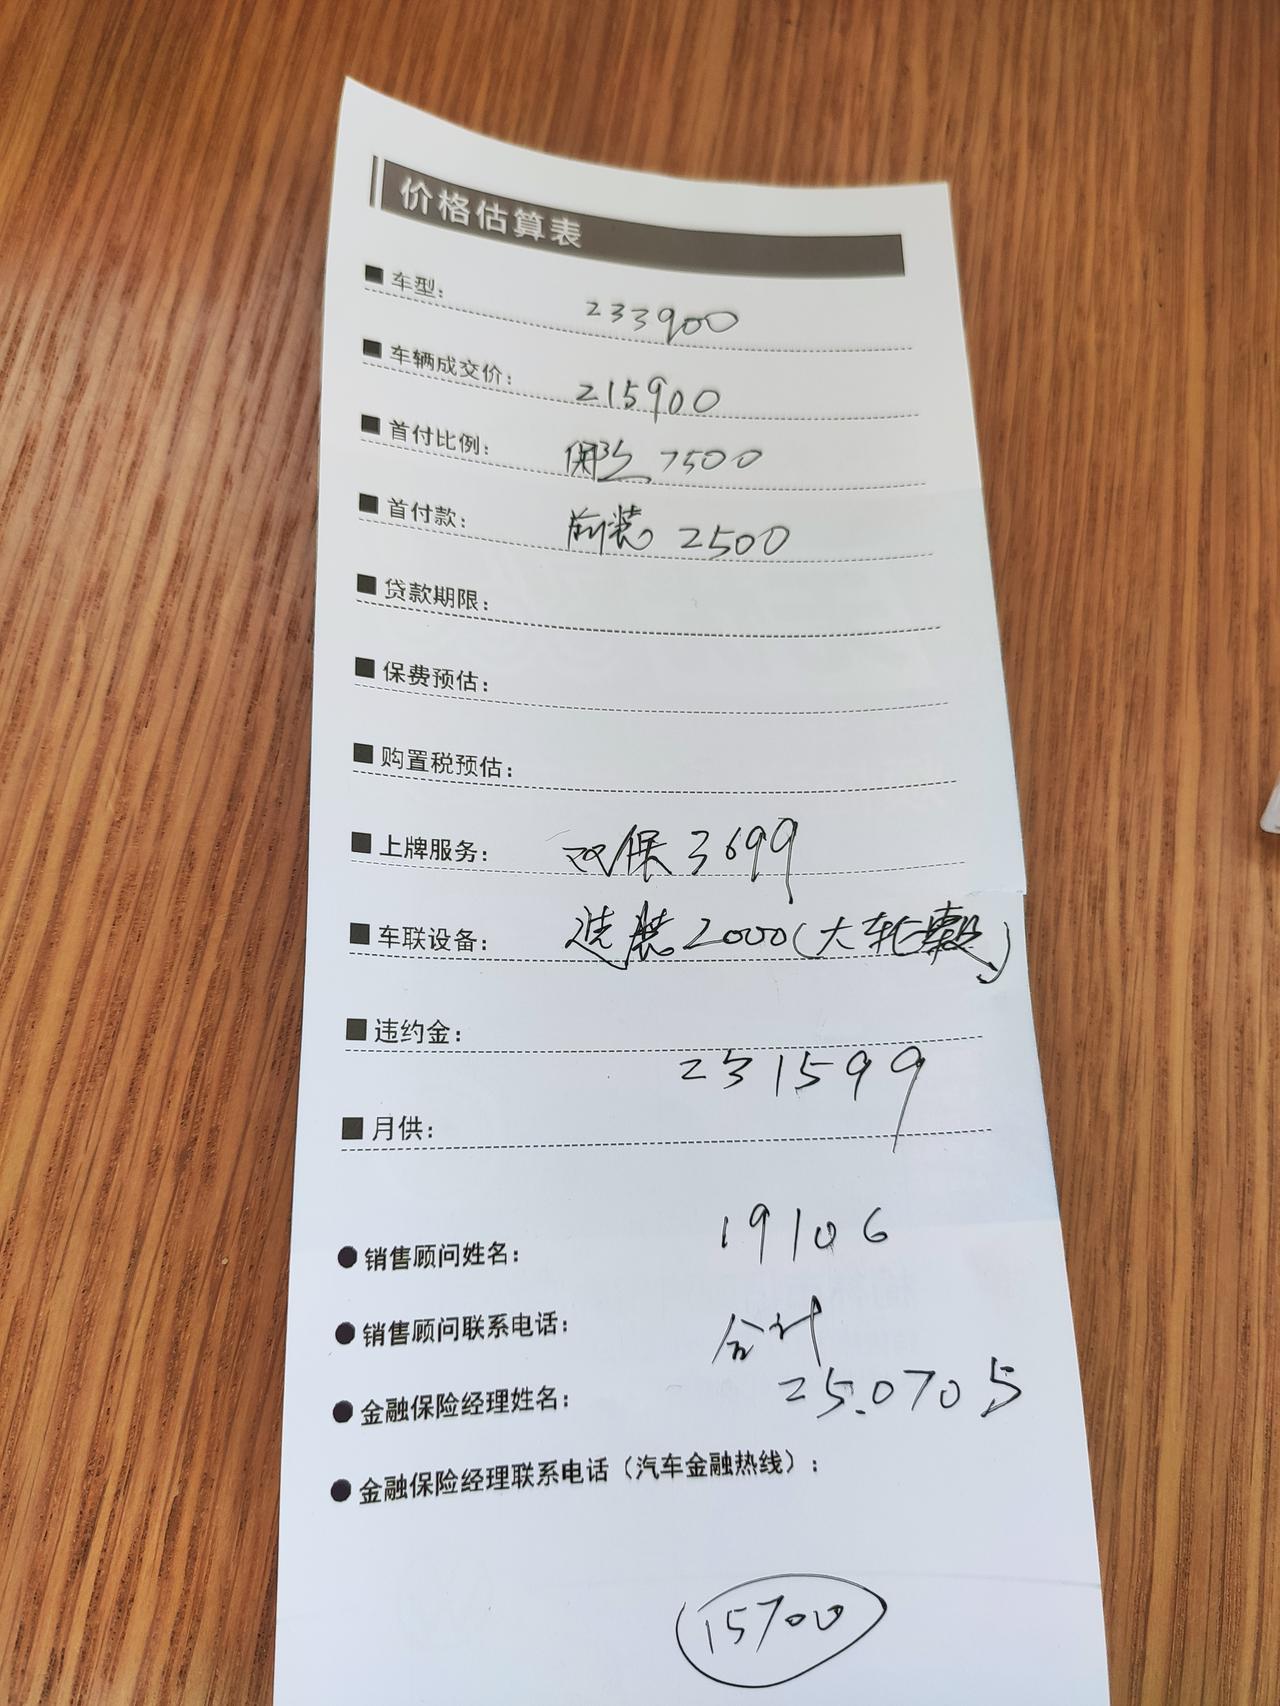 价格估算表
车型: 233900
车辆成交价: 215900
首付比例: 保险 7500
首付款: 前装 2500
贷款期限:
保费预估:
购置税预估:
上牌服务: 双保 3699
车联设备: 选装 2000(大轮毂)
违约金:
231599
月供:
19106
销售顾问姓名:
销售顾问联系电话: 合计
25.0705
金融保险经理姓名:
金融保险经理联系电话(汽车金融热线):
15700